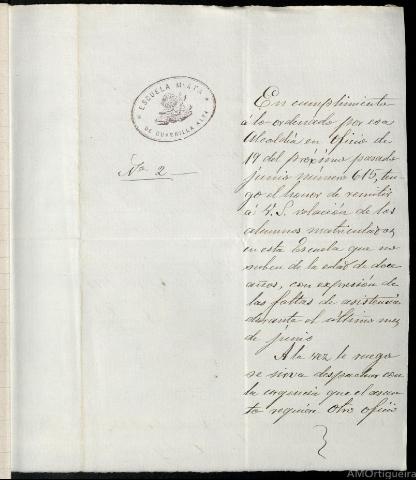 ESCUELA MIXTA
DE CUADRILLA ALTA
Nº 2
En cumplimiento
á lo ordenado por esa
Alcaldía en oficio de
19 del próximo pasado
junio número 615, ten-
go el honor de remitir
á V. S. relación de los
alumnos matriculados
en esta Escuela que no
suben de la edad de doce
años, con expresión de
las faltas de asistencia
durante el último mes
de junio
A la vez le ruego
se sirva despachar con
la urgencia que el asun-
to requiere otro oficio
AMOrtigueira